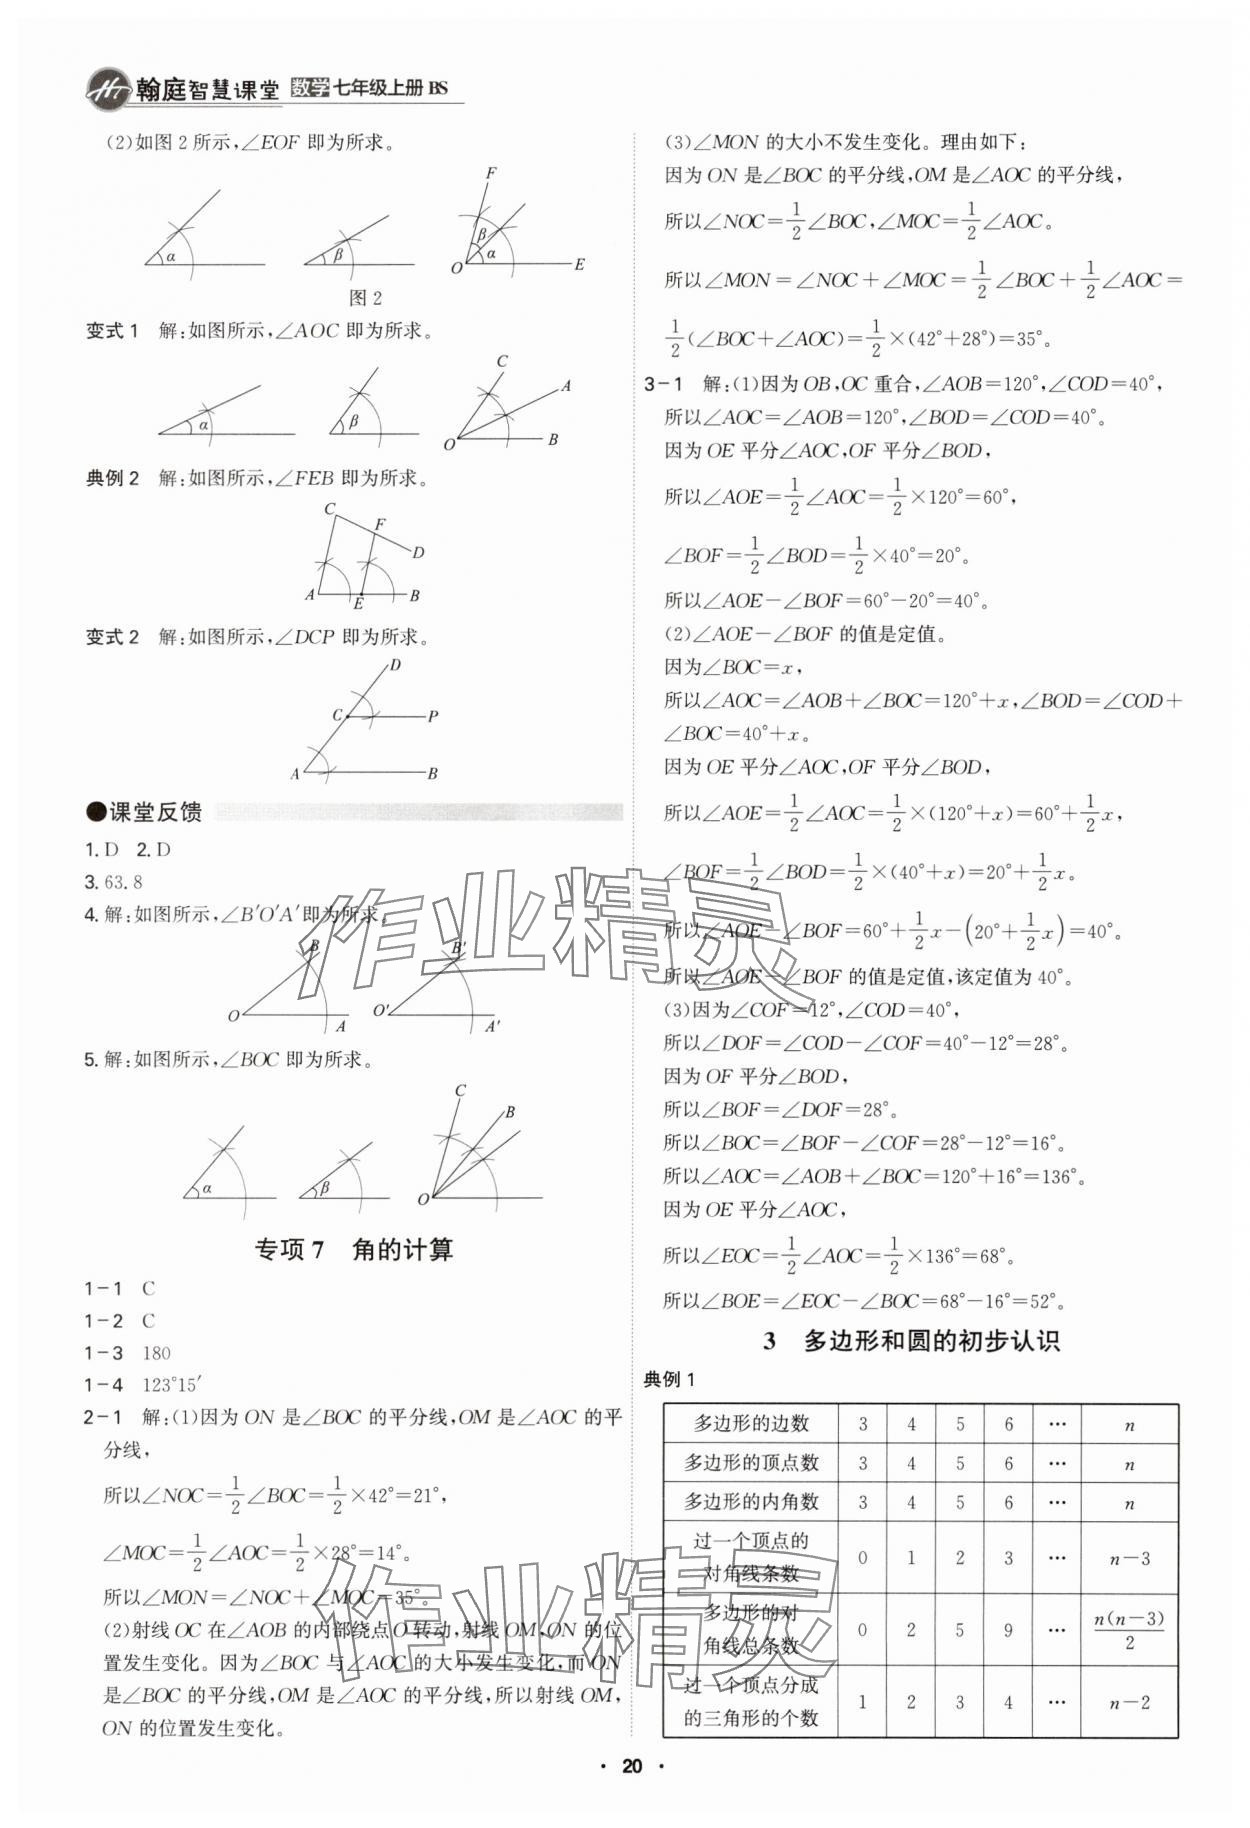 翰庭智慧课堂 数学 七年级上册 BS
(2)如图2所示,∠EOF即为所求。
α β F O β α E
图2
变式1 解:如图所示,∠AOC即为所求。
α β C A O B
典例2 解:如图所示,∠FEB即为所求。
C F D A E B
变式2 解:如图所示,∠DCP即为所求。
D C P A B
●课堂反馈
1. D 2. D
3. 63.8
4. 解:如图所示,∠B′O′A′即为所求。
B O A B′ O′ A′
5. 解:如图所示,∠BOC即为所求。
α β C B O
专项7 角的计算
1-1 C
1-2 C
1-3 180
1-4 123°15′
2-1 解:(1)因为ON是∠BOC的平分线,OM是∠AOC的平
分线,
所以∠NOC=1/2∠BOC=1/2×42°=21°,
∠MOC=1/2∠AOC=1/2×28°=14°。
所以∠MON=∠NOC+∠MOC=35°。
(2)射线OC在∠AOB的内部绕点O转动,射线OM,ON的位
置发生变化。因为∠BOC与∠AOC的大小发生变化,而ON
是∠BOC的平分线,OM是∠AOC的平分线,所以射线OM,
ON的位置发生变化。
(3)∠MON的大小不发生变化。理由如下:
因为ON是∠BOC的平分线,OM是∠AOC的平分线,
所以∠NOC=1/2∠BOC,∠MOC=1/2∠AOC。
所以∠MON=∠NOC+∠MOC=1/2∠BOC+1/2∠AOC=
1/2(∠BOC+∠AOC)=1/2×(42°+28°)=35°。
3-1 解:(1)因为OB,OC重合,∠AOB=120°,∠COD=40°,
所以∠AOC=∠AOB=120°,∠BOD=∠COD=40°。
因为OE平分∠AOC,OF平分∠BOD,
所以∠AOE=1/2∠AOC=1/2×120°=60°,
∠BOF=1/2∠BOD=1/2×40°=20°。
所以∠AOE-∠BOF=60°-20°=40°。
(2)∠AOE-∠BOF的值是定值。
因为∠BOC=x,
所以∠AOC=∠AOB+∠BOC=120°+x,∠BOD=∠COD+
∠BOC=40°+x。
因为OE平分∠AOC,OF平分∠BOD,
所以∠AOE=1/2∠AOC=1/2×(120°+x)=60°+1/2x,
∠BOF=1/2∠BOD=1/2×(40°+x)=20°+1/2x。
所以∠AOE-∠BOF=60°+1/2x-(20°+1/2x)=40°。
所以∠AOE-∠BOF的值是定值,该定值为40°。
(3)因为∠COF=12°,∠COD=40°,
所以∠DOF=∠COD-∠COF=40°-12°=28°。
因为OF平分∠BOD,
所以∠BOF=∠DOF=28°。
所以∠BOC=∠BOF-∠COF=28°-12°=16°。
所以∠AOC=∠AOB+∠BOC=120°+16°=136°。
因为OE平分∠AOC,
所以∠EOC=1/2∠AOC=1/2×136°=68°。
所以∠BOE=∠EOC-∠BOC=68°-16°=52°。
3 多边形和圆的初步认识
典例1
多边形的边数 3 4 5 6 … n
多边形的顶点数 3 4 5 6 … n
多边形的内角数 3 4 5 6 … n
过一个顶点的
对角线条数 0 1 2 3 … n-3
多边形的对
角线总条数 0 2 5 9 … n(n-3)/2
过一个顶点分成
的三角形的个数 1 2 3 4 … n-2
· 20 ·
作业精灵
作业精灵